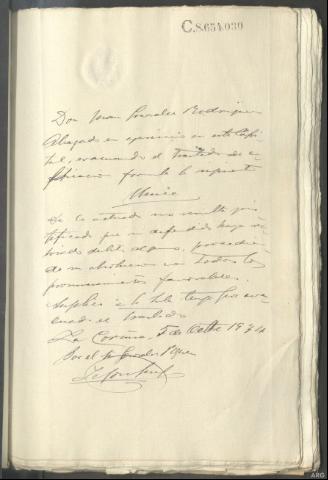 C.8.654.030
Don Juan González Rodríguez
Abogado en ejercicio en esta Capi-
tal, evacuando el traslado de ca-
lificación formula la siguiente
Unica
De lo actuado no resulta jus-
tificado que mi defendido haya co-
metido delito alguno, procedien-
do su absolución con todos los
pronunciamientos favorables.
Suplico a la Sala tenga por eva-
cuado el traslado.
La Coruña, 5 de Octbre 1934
Por el
ARG